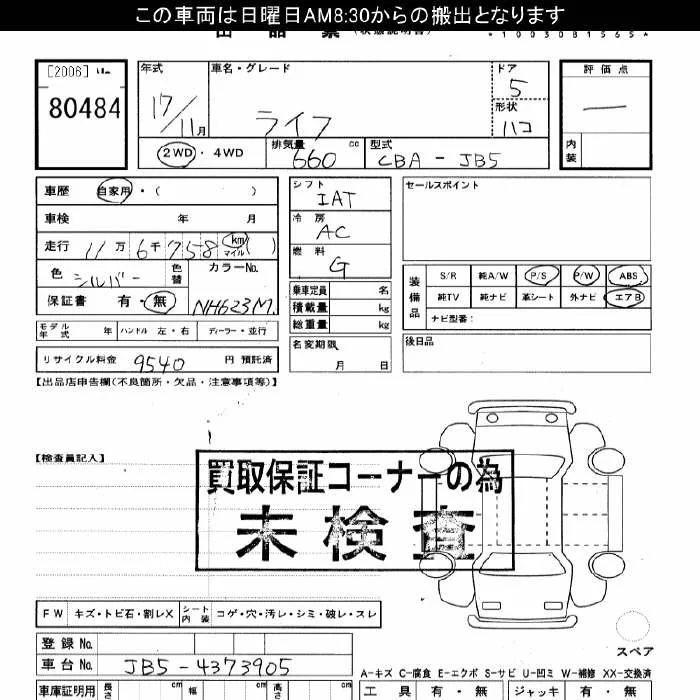 この車両は日曜日AM8:30からの搬出となります
*1003081565*
[2006]
80484
年式 車名・グレード ドア 評価点
17/11月 ライフ 5 —
形状 ハコ
内装
2WD・4WD 排気量 660 cc 型式 CBA-JB5
車歴 自家用・( )
車検 年 月
走行 11万6千758 km マイル( )
色 シルバー 色替 カラーNo.
保証書 有・無 NH623M
モデル年式 年 ハンドル 左・右 ディーラー・並行
リサイクル料金 9540 円 預託済
シフト IAT
冷房 AC
燃料 G
乗車定員 名
積載量 kg
総重量 kg
名変期限 月 日
セールスポイント
装備品 S/R 純A/W P/S P/W ABS
純TV 純ナビ 革シート 外ナビ エアB
ナビ型番:
後日品
【出品店申告欄(不良箇所・欠品・注意事項等)】
【検査員記入】
買取保証コーナーの為
未検査
FW キズ・トビ石・割レX シート内装 コゲ・穴・汚レ・シミ・破レ・スレ
登録No.
車台No. JB5-4373905
スペア
A-キズ C-腐食 E-エクボ S-サビ U-凹ミ W-補修 XX-交換済
車庫証明用 長さ cm 幅 cm 高さ cm 工具 有・無 ジャッキ 有・無